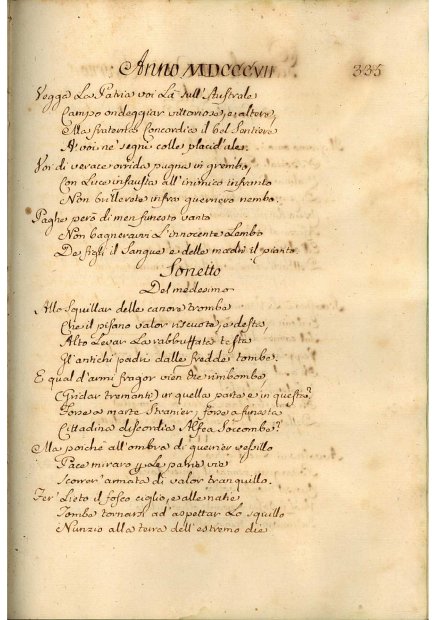 Anno MDCCCVII 335
Vegga La Patria voi Là sull'Australe
Campo ondeggiar vittoriose, ed altere,
Ma fraterna Concordia il bel Sentiere
A' voi ne segni colle placid'ale.
Voi di verace orrida pugna in grembo,
Con Luce infausta all'inimico infranto
Non brillerete infra guerriero nembo.
Paghe però di men funesto vanto
Non bagneravvi L'innocente Lembo
De' figli il Sangue e delle madri il pianto.
Sonetto
Del medesimo
Allo Squillar delle canore trombe
Che il pisano valor riscuote, e desta,
Alto Levar La rabbuffata testa
Gl'antichi padri dalle fredde tombe.
E qual d'armi fragor vien che rimbombe
(Gridar tremanti) in quella parte e in questa?
Forse a marte Stranier, forse a funesta
Cittadina discordia Alfea Soccombe?
Ma poiché all'ombra di guerrier vessillo
Pace miraro per Le patrie vie
Scorrer armata di valor tranquillo.
Fer' Lieto il fosco ciglio, e alle natie
Tombe tornarsi ad aspettar Lo squillo
Nunzio alla terra dell'estremo die